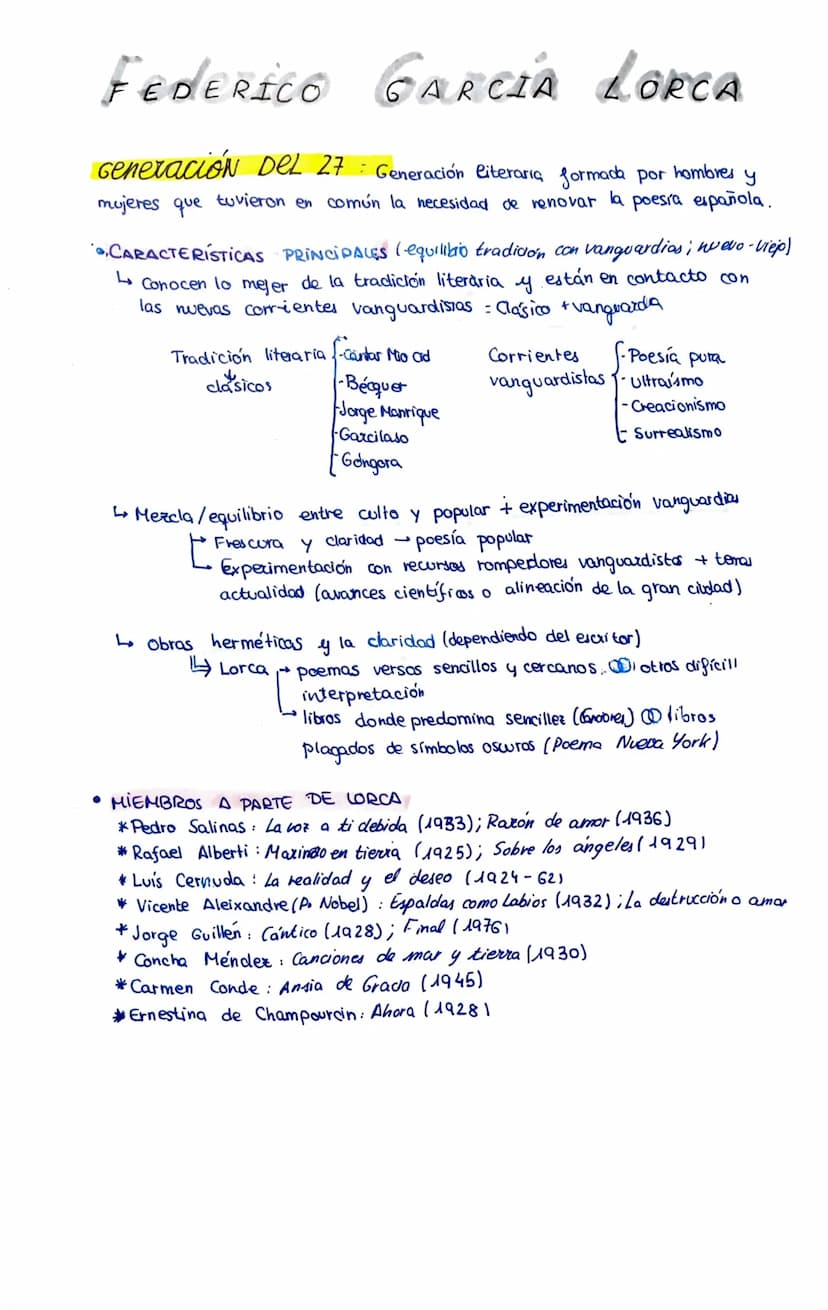 FEDERICO GARCÍA LORCA
GENERACIÓN DEL 27 : Generación literaria formada por hombres y
mujeres que tuvieron en común la necesidad de renovar la poesía española.
CARACTERÍSTICAS PRINCIPALES (equilibrio tradición con vanguardias ; nuevo-viejo)
↳ Conocen lo mejer de la tradición literaria y están en contacto con
las nuevas corrientes vanguardistas = Clásico + vanguardia
Tradición literaria
↓
clásicos
- Cantar Mio Cid
- Bécquer
- Jorge Manrique
- Garcilaso
- Góngora
Corrientes
vanguardistas
- Poesía pura
- Ultraísmo
- Creacionismo
- Surrealismo
↳ Mezcla/equilibrio entre culto y popular + experimentación vanguardias
→ Frescura y claridad → poesía popular
→ Experimentación con recursos rompedores vanguardistas + temas
actualidad (avances científicos o alineación de la gran ciudad)
↳ Obras herméticas y la claridad (dependiendo del escritor)
↳ Lorca → poemas versos sencillos y cercanos. otros difícill
interpretación
→ libros donde predomina sencillez libros
plagados de símbolos oscuros (Poema Nueva York)
• MIEMBROS A PARTE DE LORCA
* Pedro Salinas : La voz a ti debida (1933); Razón de amor (1936)
* Rafael Alberti : en tierra (1925); Sobre los ángeles (1929)
* Luís Cernuda : La realidad y el deseo (1924-62)
* Vicente Aleixandre (P. Nobel) : Espaldas como Labios (1932) ; La destrucción o amor
* Jorge Guillén : Cántico (1928) ; Final (1976)
* Concha Méndez : Canciones de mar y tierra (1930)
* Carmen Conde : Ansia de Gracia (1945)
* Ernestina de Champourcin : Ahora (1928)